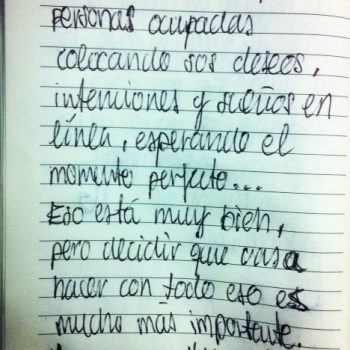 personas ocupadas
colocando sos deseos,
intenciones y sueños en
línea, esperando el
momento perfecto...
Eso está muy bien,
pero decidir que cosa
hacer con todo eso es
mucho mas importante.